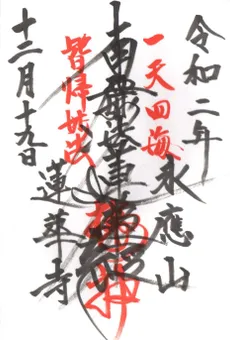 令和二年
一天四海
永應山
南無妙法蓮華経
皆帰妙法
蓮華寺
十二月十九日